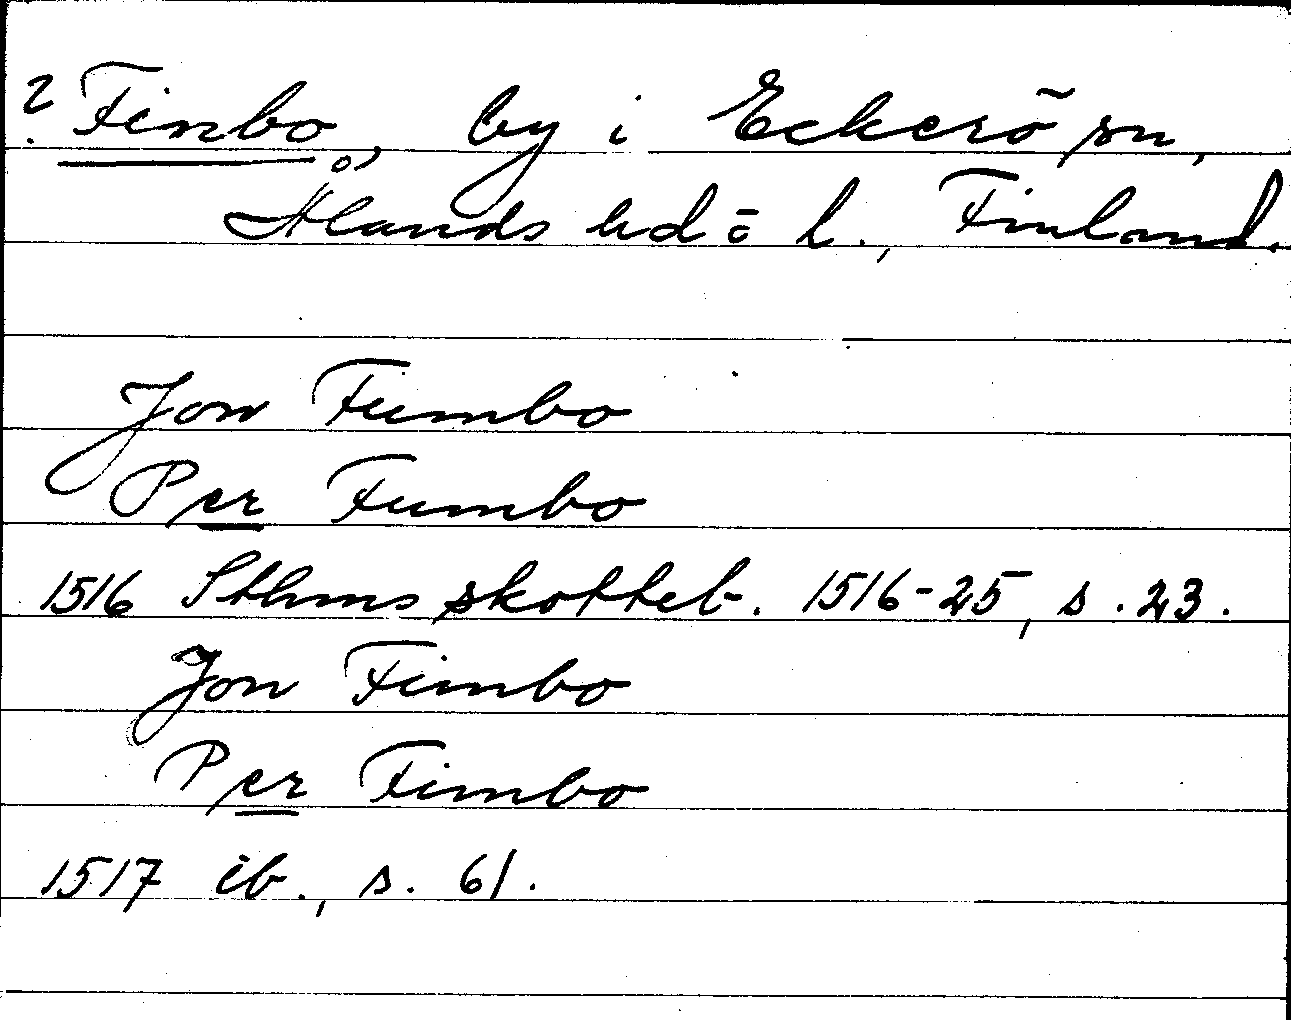 ? Finbo, by i Eckerö sn,
Ålands hd o l., Finland.
Jon Fumbo
Per Fumbo
1516 Sthms skotteb. 1516-25, s. 23.
Jon Fimbo
Per Fimbo
1517 ib., s. 61.